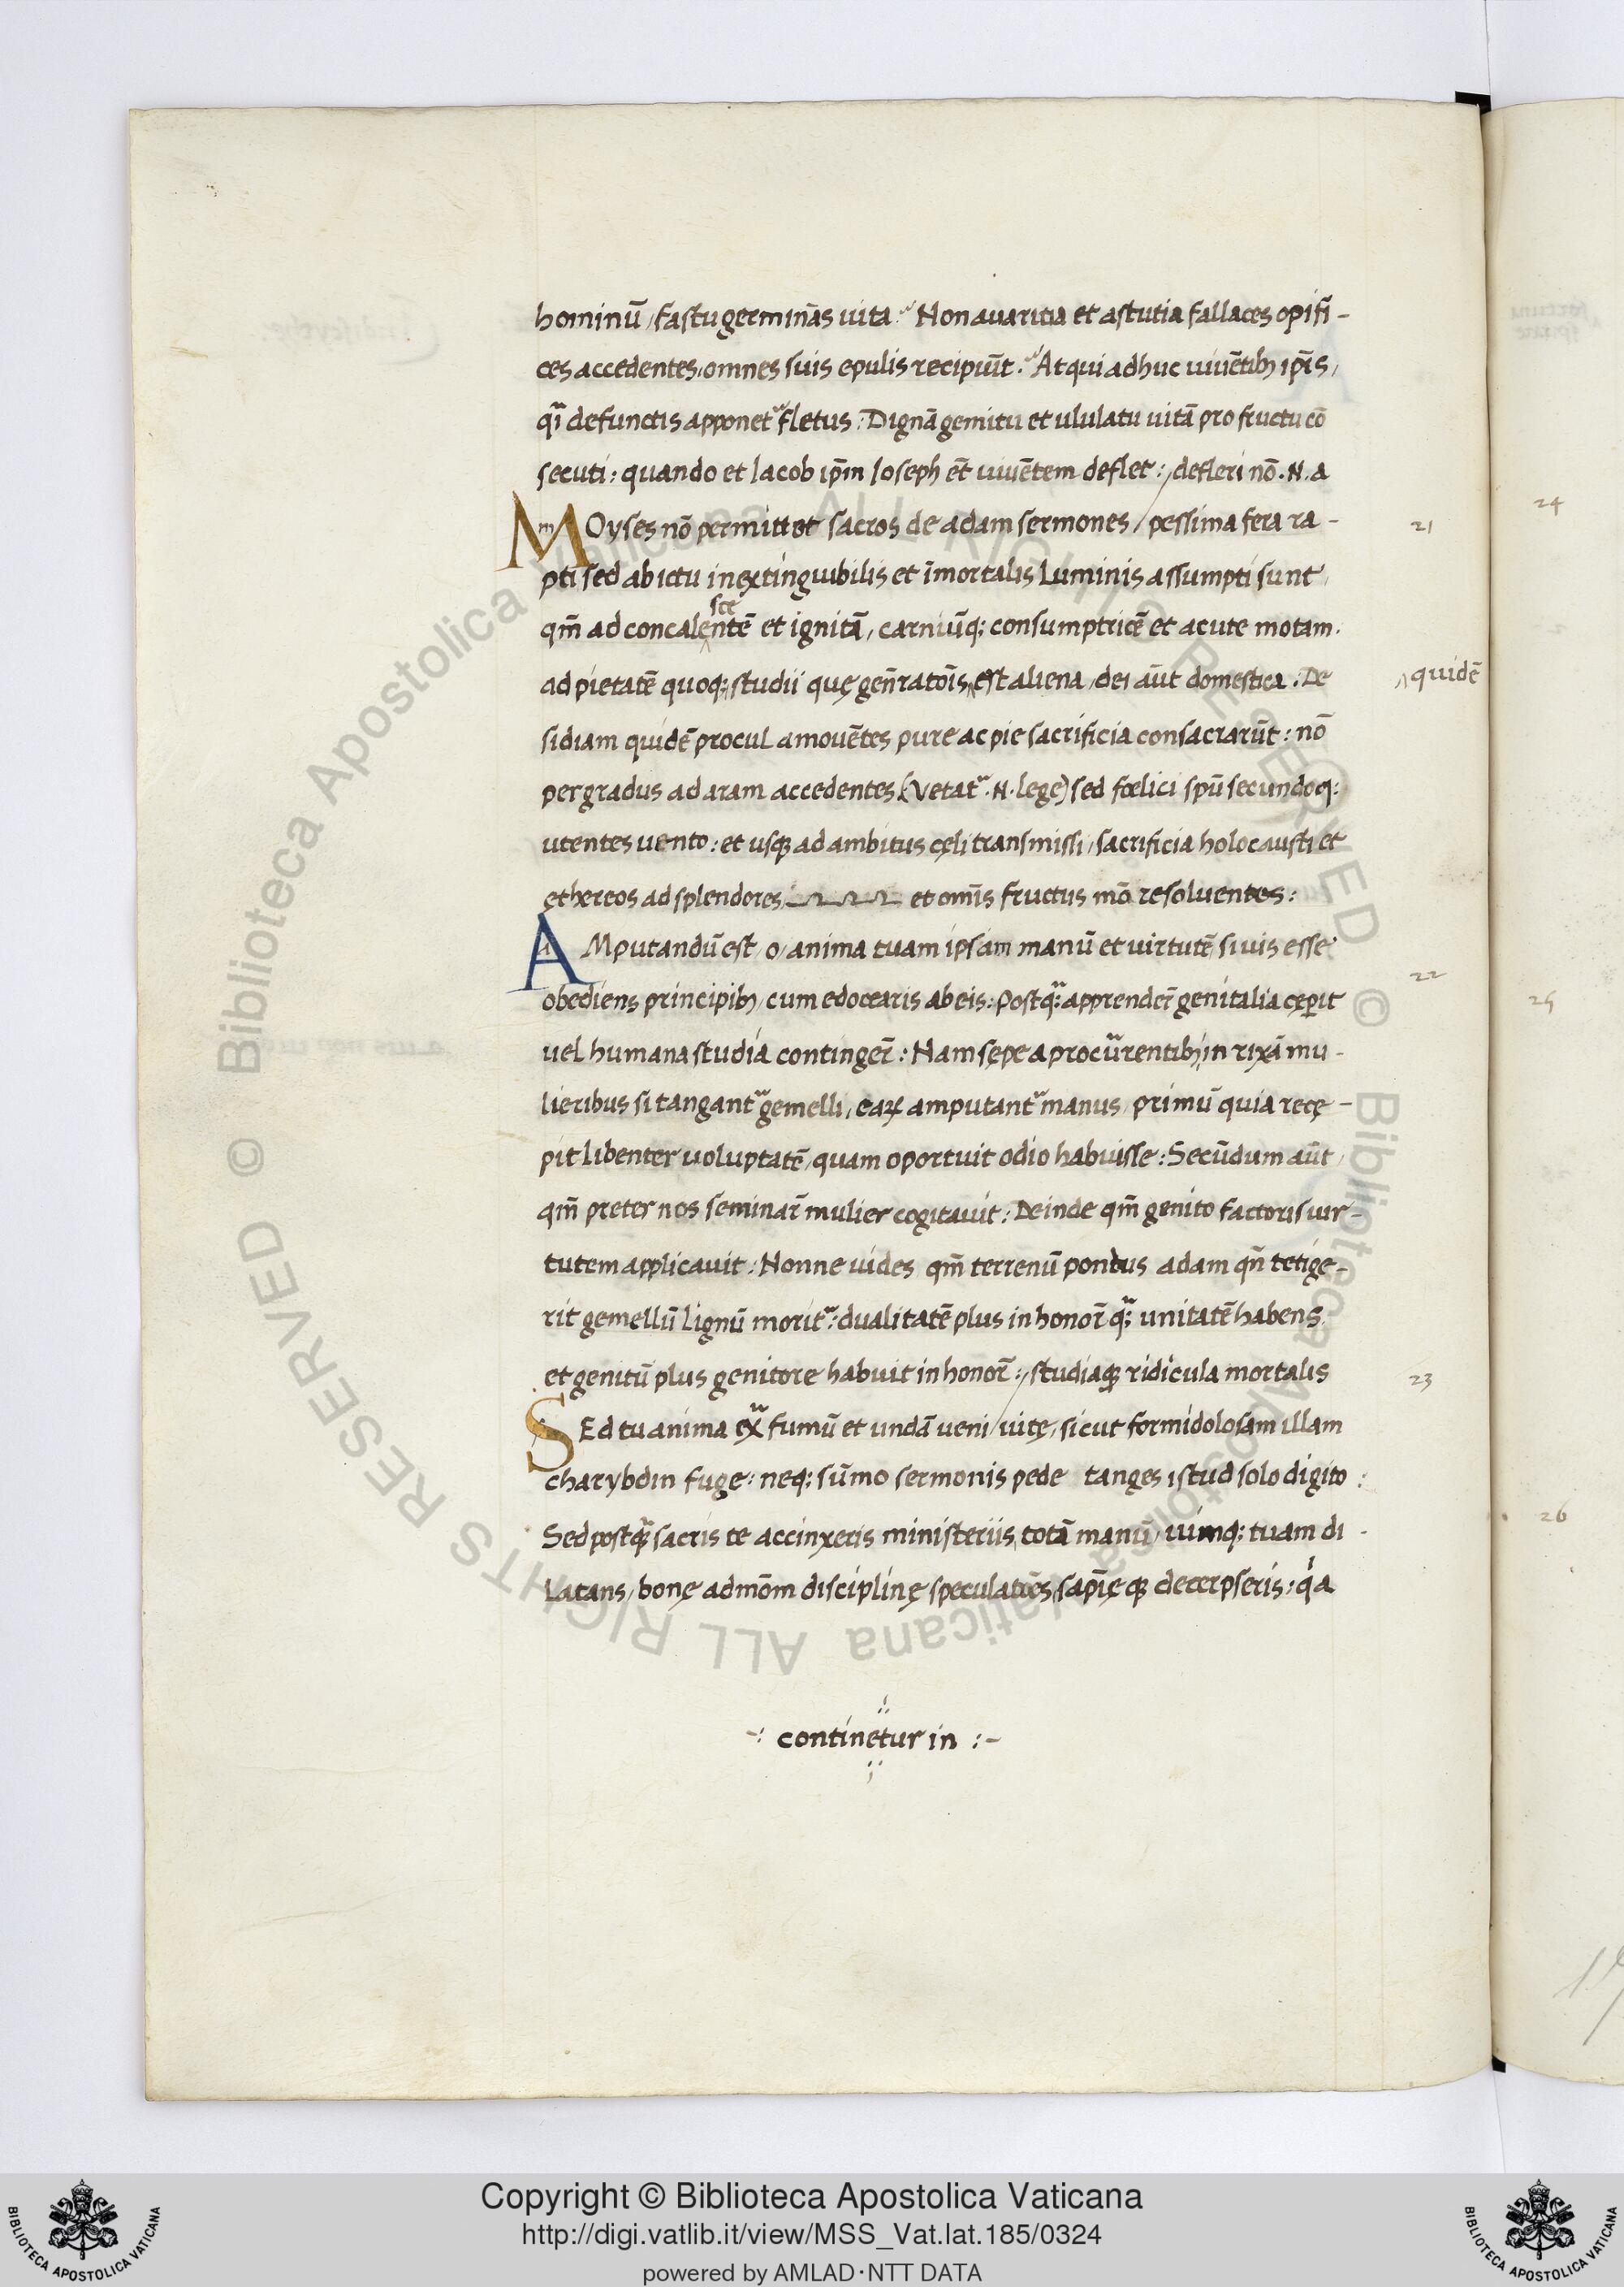 hominū / fastu germinās uita ./ Non auaritia et astutia fallaces opifi-
ces accedentes, omnes suis epulis recipiūt ./ Atqui adhuc uiuētibȝ ip̄is,
qͣi defunctis apponetᷣ fletus : Dignā gemitu et ululatu uitā pro fructu cō
secuti : quando et Iacob ip̄m Ioseph et̄ uiuētem deflet : / defleri nō . N . a
MOyses nō permittet sacros de adam sermones / pessima fera ra-
21
pti sed ab ictu inextinguibilis et īmortalis Luminis assumpti sunt,
sce
qm̄ ad concalentē et ignitā, carniūq; consumptricē et acute motam.
ad pietatē quoq; studii quę gen̄ratōis ^ est aliena, dei aūt domestica : De
^ quidē
sidiam quidē procul amouētes pure ac pie sacrificia consacrarūt : nō
per gradus ad aram accedentes (Vetatᷣ . N . lege) sed fœlici spū secundoq:
utentes uento : et usqȝ ad ambitus cęli transmissi, sacrificia holocausti et
ęthereos ad splendores, et om̄is fructus mō resoluentes :
AMputandū est, o, anima tuam ipsam manū et uirtutē, si uis esse
22
obediens principibȝ, cum edocearis ab eis : Postqͣ; apprender̄ genitalia cęperit
uel humana studia continger̄ : Nam sępe a procurrentibȝ in rixā mu-
lieribus si tangantᷣ gemelli, eaꝝ amputantᷣ manus, primū quia recę-
pit libenter uoluptatē, quam oportuit odio habuisse : Secūdum aūt,
qm̄ preter nos seminar̄ mulier cogitauit : Deinde qm̄ genito factoris uir-
tutem applicauit : Nonne uides qm̄ terrenū pondus adam qn̄ tetige-
rit gemellū Lignū moritᷣ : dualitatē plus in honor̄ qͣ; unitatē habens,
et genitū plus genitore habuit in honor̄ : / studiaqȝ ridicula mortalis
23
SEd tu anima exͣ fumū et undā ueni / uitę, sicut formidolosam illam
charybdin fuge : neq; sūmo sermonis pede tanges istud solo digito :
Sed postqͣ sacris te accinxeris ministeriis, totā manū, uimq; tuam di-
Latans, bonę admōm disciplinę speculatōes, sapīęqȝ decerpseris : qͥa
-: continetur in :-
24
25
26
Copyright © Biblioteca Apostolica Vaticana
http://digi.vatlib.it/view/MSS_Vat.lat.185/0324
powered by AMLAD·NTT DATA
BIBLIOTECA APOSTOLICA VATICANA
BIBLIOTECA APOSTOLICA VATICANA
© Biblioteca Apostolica Vaticana ALL RIGHTS RESERVED © Biblioteca Apostolica Vaticana ALL RIGHTS RESERVED